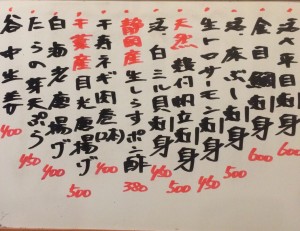 活〆平目刺身 600
金目鯛刺身 600
活〆ぶり刺身 500
生トロサーモン刺身 450
天然 殻付帆立刺身 500
活白ミル貝刺身 450
静岡産生しらすポン酢 380
千寿ネギ 500
千葉産目光唐揚げ 500
白海老唐揚げ 400
たらの芽天ぷら 450
谷中生姜 400